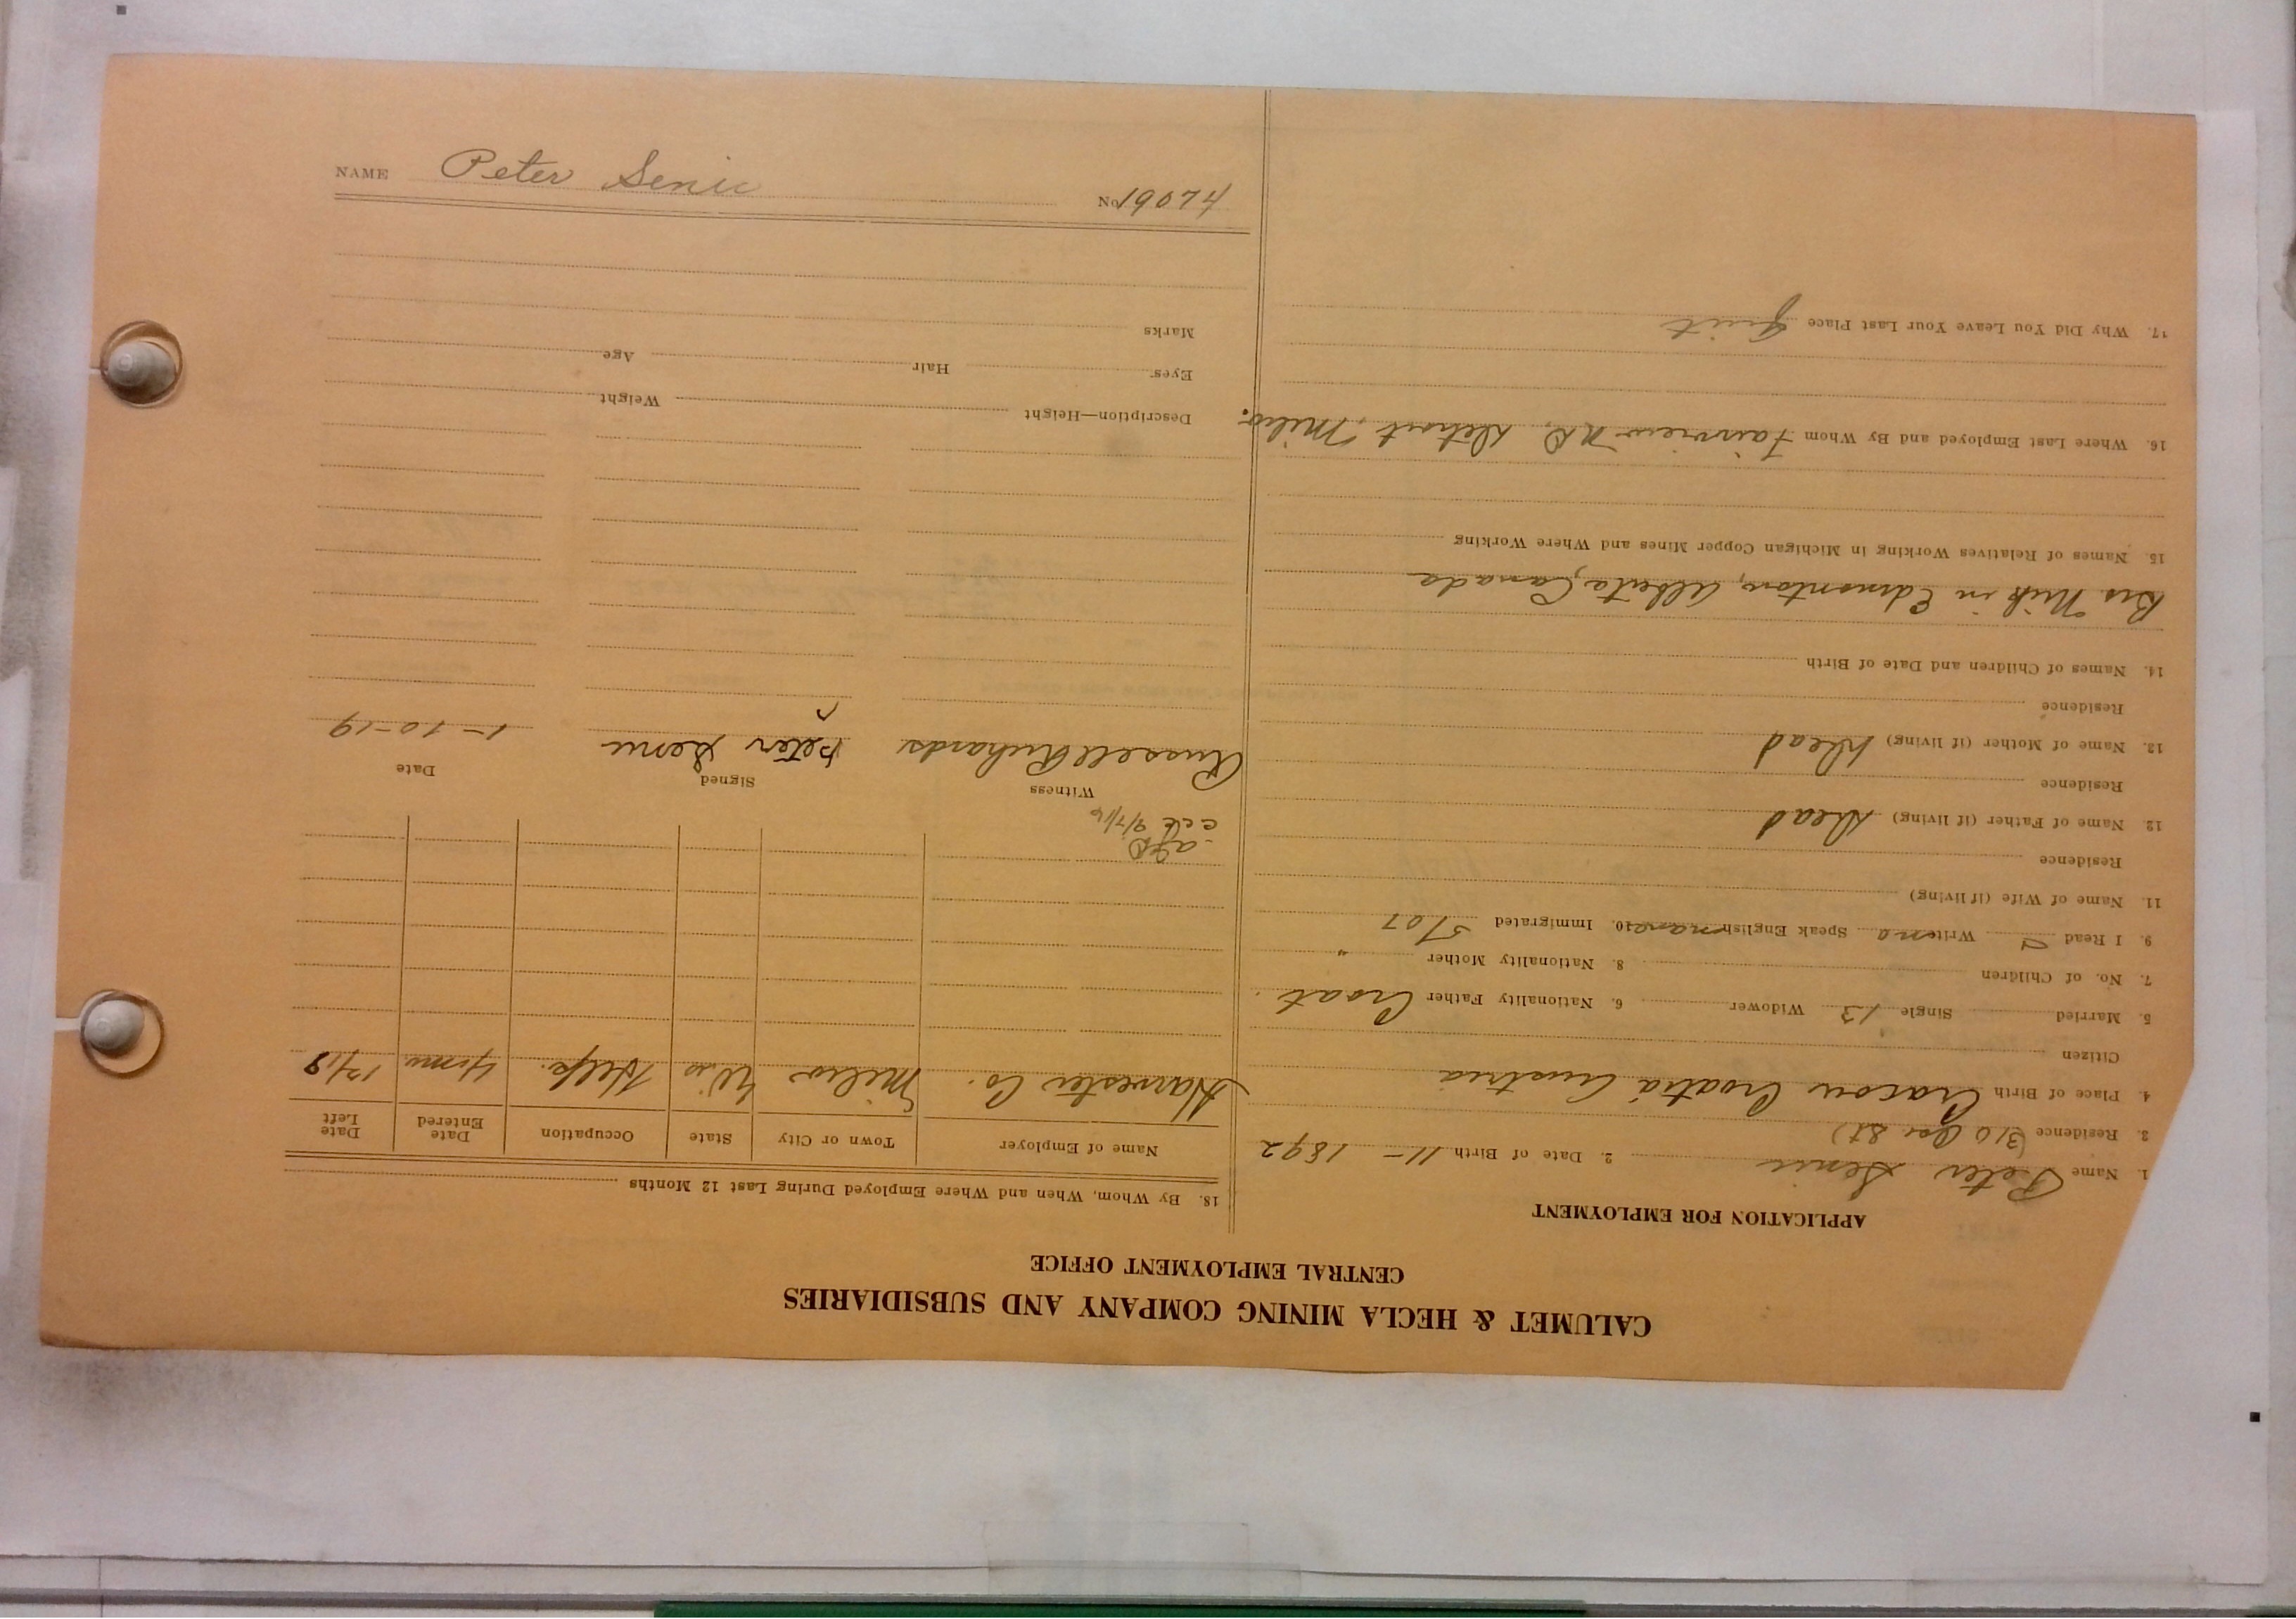 CALUMET & HECLA MINING COMPANY AND SUBSIDIARIES
CENTRAL EMPLOYMENT OFFICE
APPLICATION FOR EMPLOYMENT
1. Name Peter Senic 2. Date of Birth 11- 1892
3. Residence (310 St)
4. Place of Birth Croatia Austria
Citizen
5. Married Single 13 Widower 6. Nationality Father Croat.
7. No. of Children 8. Nationality Mother "
9. I Read Write Speak English 10. Immigrated 5/07
11. Name of Wife (if living)
Residence
12. Name of Father (if living) Dead
Residence
13. Name of Mother (if living) Dead
Residence
14. Names of Children and Date of Birth
Bro. Mik in Edmonton, Alberta, Canada
15. Names of Relatives Working in Michigan Copper Mines and Where Working
16. Where Last Employed and By Whom Fairview
17. Why Did You Leave Your Last Place Quit
18. By Whom, When and Where Employed During Last 12 Months
Name of Employer Town or City State Occupation Date Entered Date Left
Harvester Co. Milw Wis Help. 4 mo. 12/18
Witness Signed Date
Russell Richards Peter Senic 1-10-19
Description—Height Weight
Eyes Hair Age
Marks
NAME Peter Senic No 19074